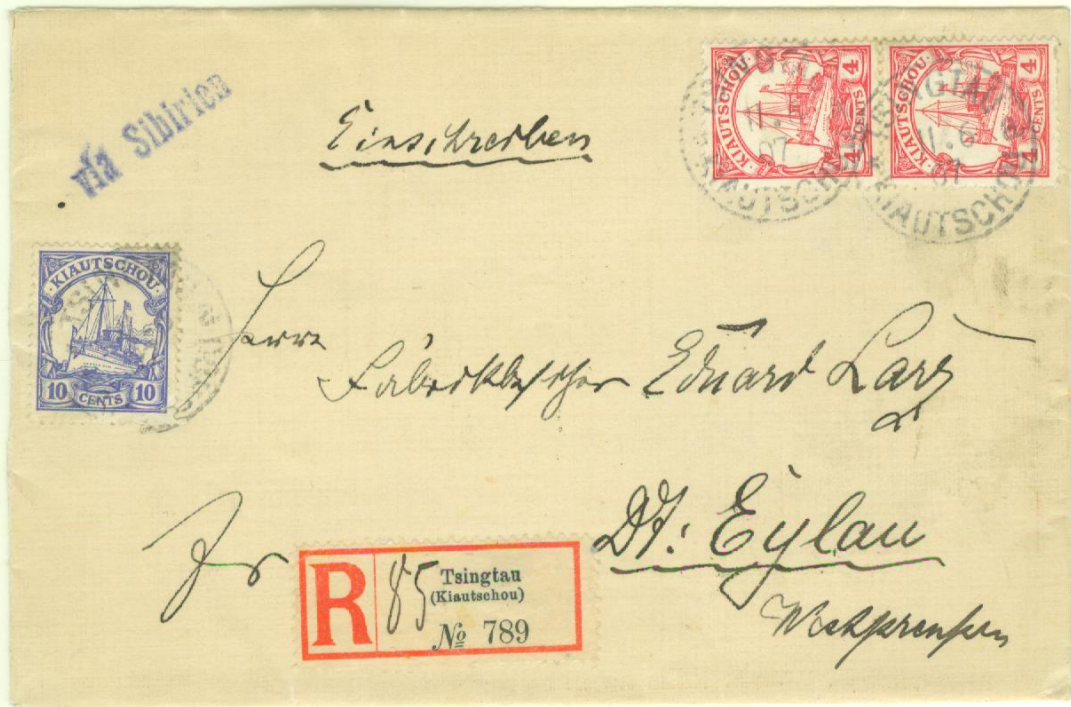 via Sibirien
Einschreiben
KIAUTSCHOU
4 4
CENTS
KIAUTSCHOU
4 4
CENTS
TSINGTAU
11.6
07
KIAUTSCHOU
TSINGTAU
11.6
07
KIAUTSCHOU
KIAUTSCHOU
10 CENTS 10
Herrn
Fabrikbesitzer Eduard
Dt: Eylau
Westpreußen
R
85
Tsingtau
(Kiautschou)
No 789